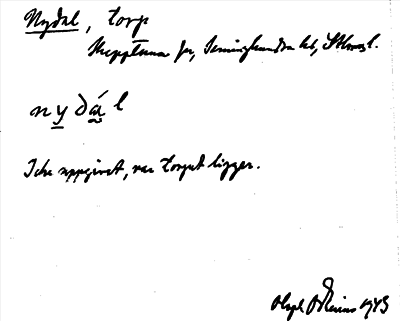 Nydal, torp
Skepptuna sn, Seminghundra hd, Sthms l.
nydál
Icke uppgivet, var torpet ligger.
1943